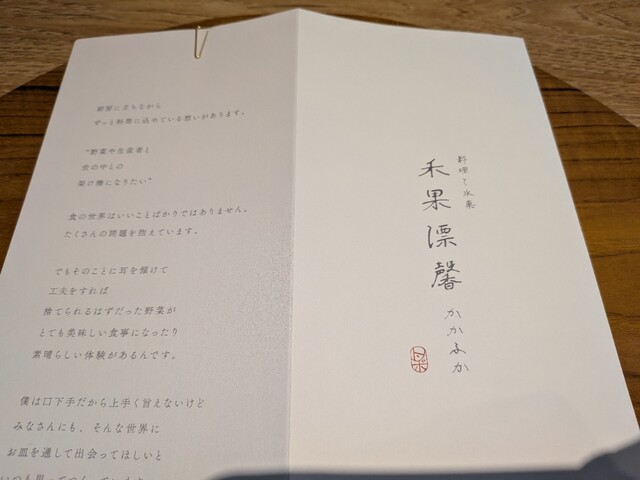 厨房に立ちながら
ずっと料理に込めている想いがあります。
"野菜や生産者と
世の中との
架け橋になりたい"
食の世界はいいことばかりではありません。
たくさんの問題を抱えています。
でもそのことに耳を傾けて
工夫をすれば
捨てられるはずだった野菜が
とても美味しい食事になったり
素晴らしい体験があるんです。
僕は口下手だから上手く言えないけど
みなさんにも、そんな世界に
お皿を通して出会ってほしいと
料理と氷菓
禾果漂馨
かかふか